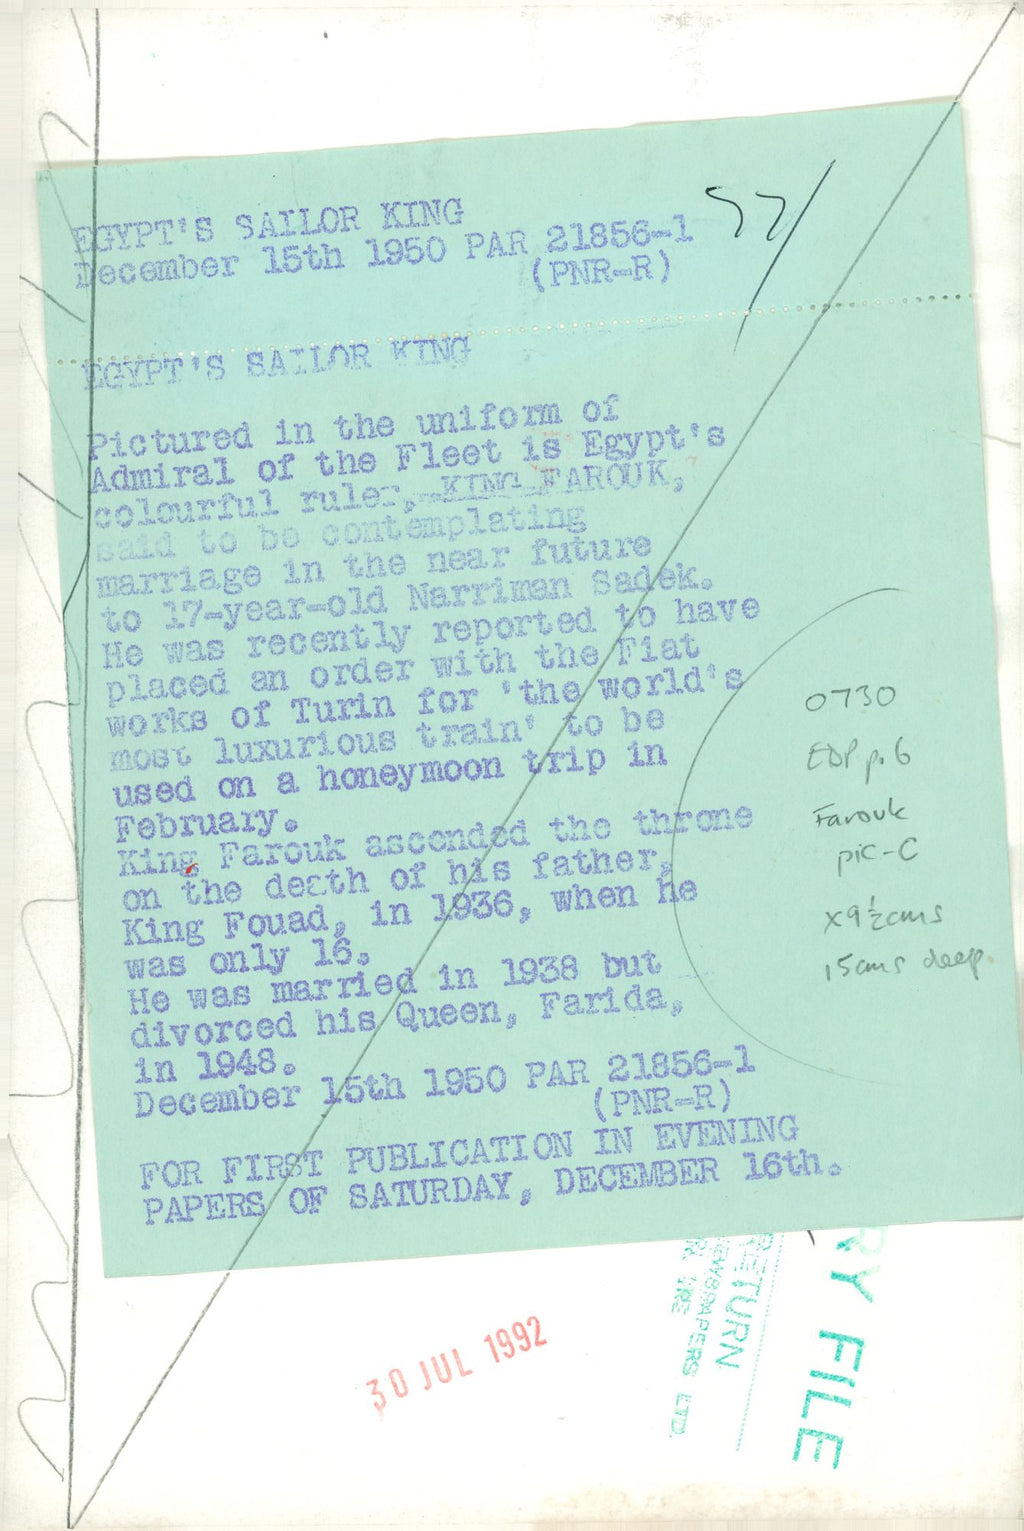 EGYPT'S SAILOR KING
December 15th 1950 PAR 21856-1
(PNR-R)
EGYPT'S SAILOR KING
Pictured in the uniform of
Admiral of the Fleet is Egypt's
colourful ruler, KING FAROUK,
said to be contemplating
marriage in the near future
to 17-year-old Narriman Sadek.
He was recently reported to have
placed an order with the Fiat
works of Turin for 'the world's
most luxurious train' to be
used on a honeymoon trip in
February.
King Farouk ascended the throne
on the death of his father,
King Fouad, in 1936, when he
was only 16.
He was married in 1938 but
divorced his Queen, Farida,
in 1948.
December 15th 1950 PAR 21856-1
(PNR-R)
FOR FIRST PUBLICATION IN EVENING
PAPERS OF SATURDAY, DECEMBER 16th.
0730
EDP p.6
Farouk
pic-C
x9½cms
15cms deep.
RY FILE
RETURN
NEWSPAPERS LTD.
30 JUL 1992